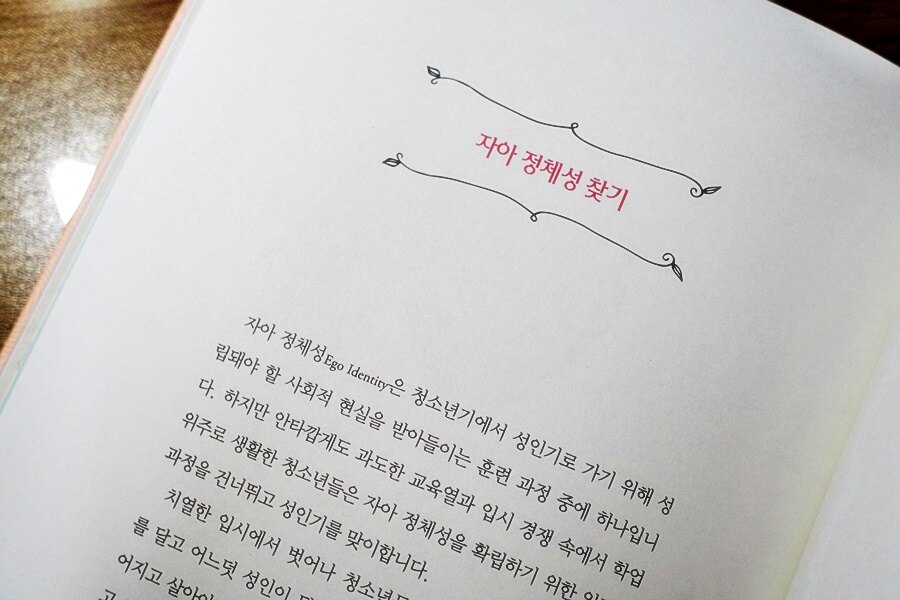 자아 정체성 찾기
자아 정체성Ego Identity은 청소년기에서 성인기로 가기 위해 성
립돼야 할 사회적 현실을 받아들이는 훈련 과정 중에 하나입니
다. 하지만 안타깝게도 과도한 교육열과 입시 경쟁 속에서 학업
위주로 생활한 청소년들은 자아 정체성을 확립하기 위한
과정을 건너뛰고 성인기를 맞이합니다.
치열한 입시에서 벗어나
를 달고 어느덧 성인이
어지고